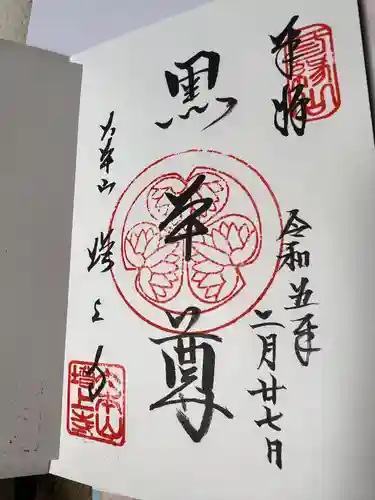 奉拝
令和五年
二月廿七日
黒本尊
大本山
増上寺
大本山
増上寺